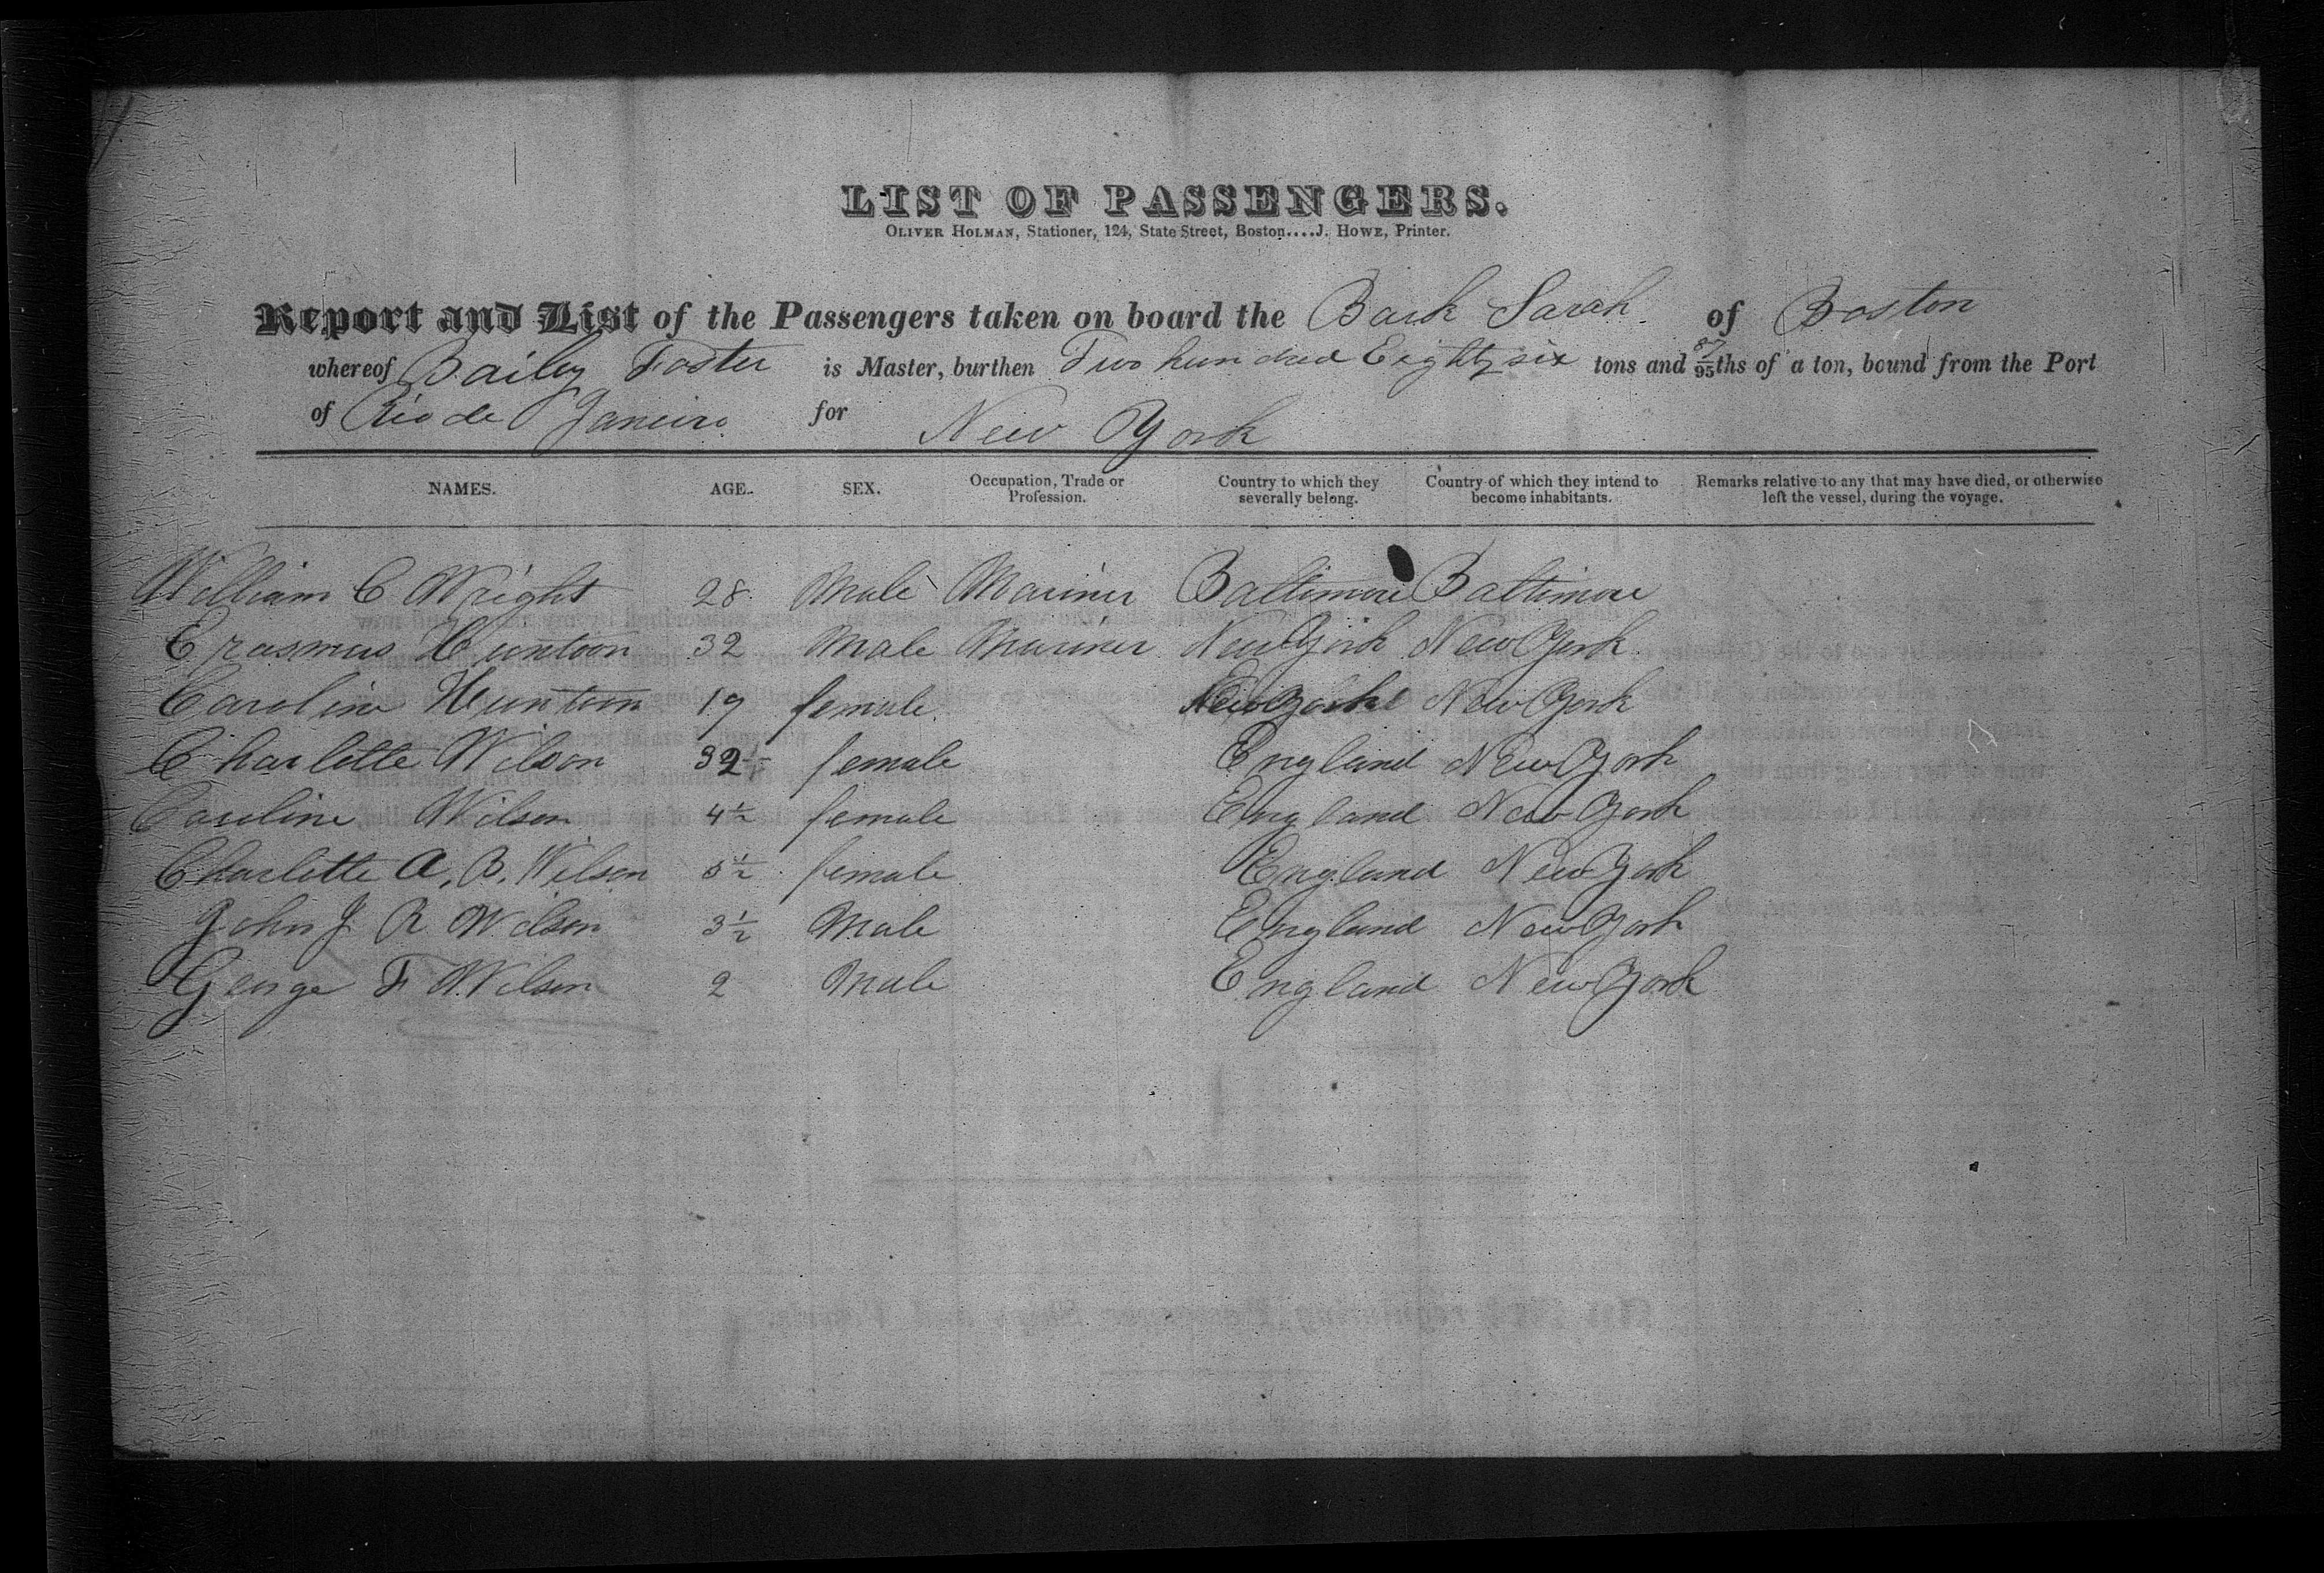 LIST OF PASSENGERS.
OLIVER HOLMAN, Stationer, 124, State Street, Boston....J. HOWE, Printer.
Report and List of the Passengers taken on board the Bark Sarah of Boston
whereof Bailey Foster is Master, burthen Two hundred Eighty six tons and 87/95ths of a ton, bound from the Port
of Rio de Janeiro for New York
NAMES. AGE. SEX. Occupation, Trade or Profession. Country to which they severally belong. Country of which they intend to become inhabitants. Remarks relative to any that may have died, or otherwise left the vessel, during the voyage.
William C Wright 28 Male Mariner Baltimore Baltimore
Erasmus Huntoon 32 Male Mariner New York New York
Caroline Huntoon 19 female New York New York
Charlotte Wilson 32 female England New York
Caroline Wilson 4½ female England New York
Charlotte A. B. Wilson 5½ female England New York
John J R Wilson 3½ Male England New York
George F Wilson 2 Male England New York